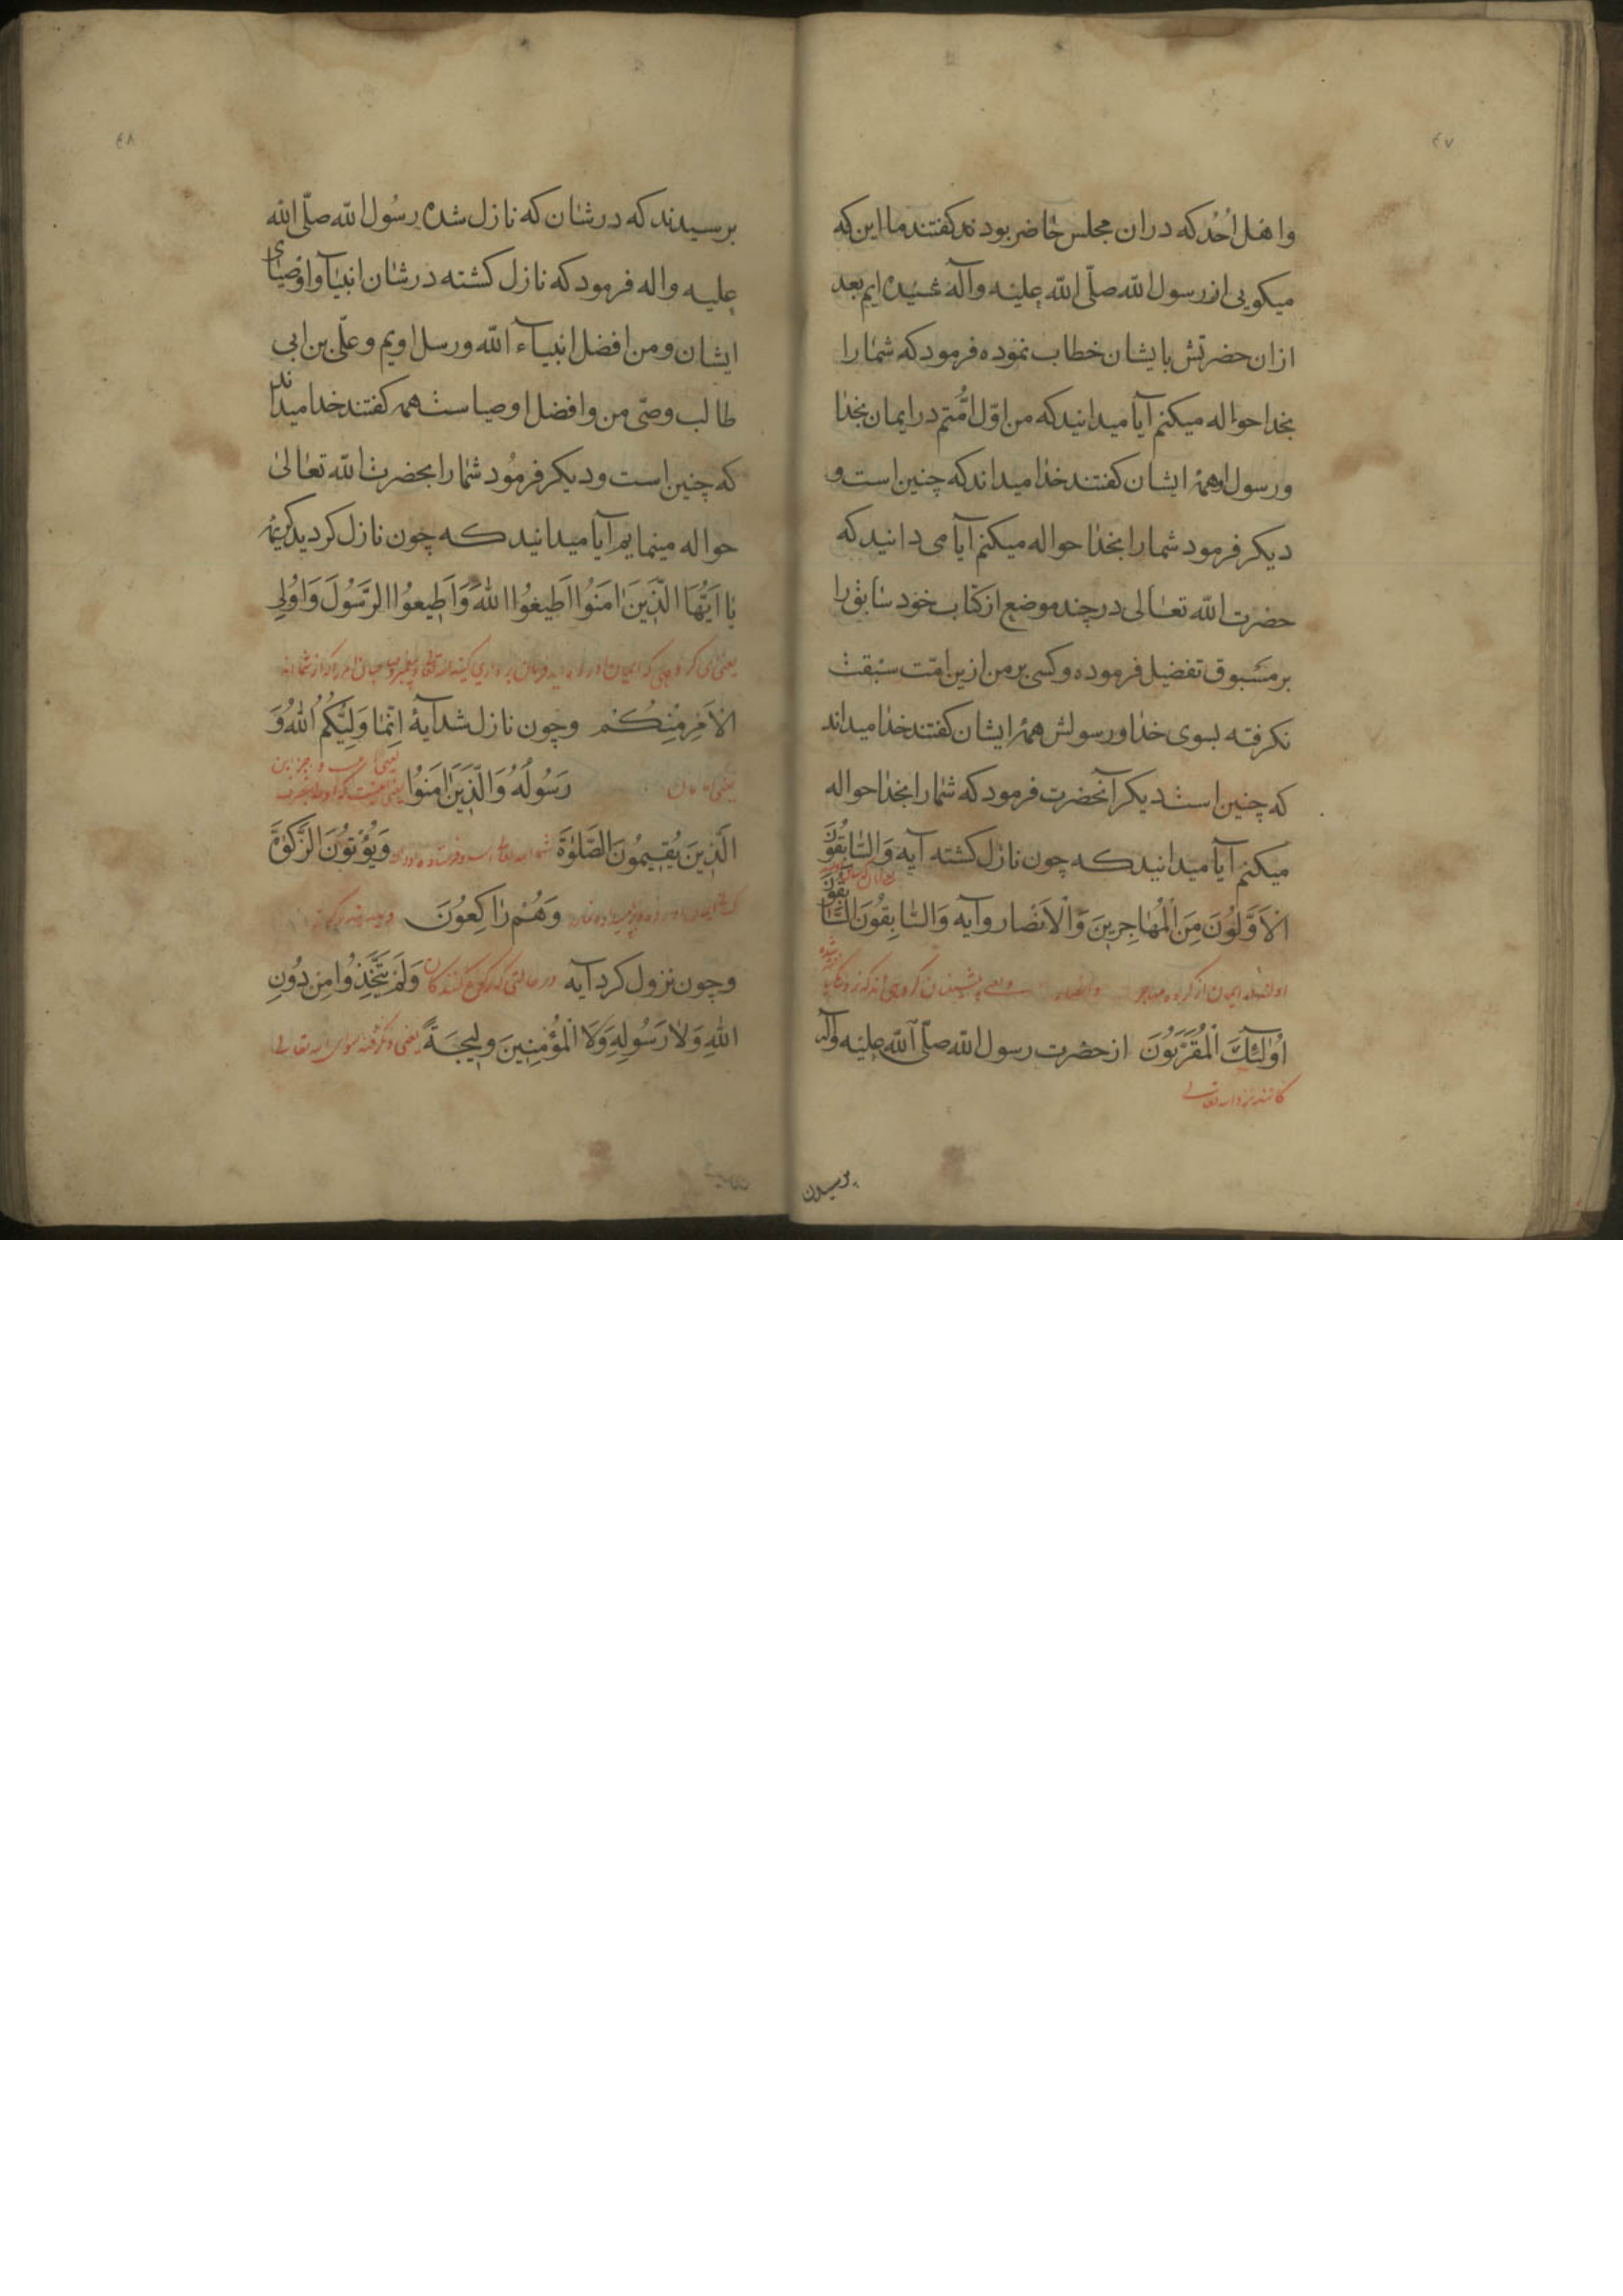 ٤٧
و اهل اُحُد که دران مجلس حاضر بودند کفتند ما این که
میکویی از رسول الله صلّی الله علیه وآله شنیده ایم بعد
ازان حضرتش بایشان خطاب نموده فرمود که شما را
بخدا حواله میکنم آیا میدانید که من اوّل امّتم در ایمان بخدا
و رسول او همهٔ ایشان کفتند خدا میداند که چنین است و
دیکر فرمود شما را بخدا حواله میکنم آیا می دانید که
حضرت الله تعالی در چند موضع از کتاب خود سابق را
بر مسبوق تفضیل فرموده و کسی بر من ازین امّت سبقت
نکرفته بسوی خدا و رسولش همهٔ ایشان کفتند خدا میداند
که چنین است دیکر آنحضرت فرمود که شما را بخدا حواله
میکنم آیا میدانید که چون نازل کشته آیه وَالسَّابِقُونَ
الْاَوَّلُونَ مِنَ الْمُهَاجِرِینَ وَالْاَنْصَار و آیه وَالسَّابِقُونَ السَّابِقُونَ
ایمان از کروه مهاجر و انصار
اُولٰئِكَ الْمُقَرَّبُونَ از حضرت رسول الله صلّی الله علیه وآله
پرسیدن
٤٨
پرسیدند که در شان که نازل شده رسُول الله صلّی الله
علیه واله فرمود که نازل کشته در شان انبیآ و اوصیای
ایشان و من افضل انبیآء الله و رسل اویم و علّی بن ابی
طالب وصّی من و افضل اوصیاست همه کفتند خدا میداند
که چنین است و دیکر فرمُود شما را بحضرت الله تعالیٰ
حواله مینمایم آیا میدانید که چون نازل کردید کریمهٔ
یَا اَیُّهَا الَّذِینَ اٰمَنُوا اَطِیعُوا اللّٰهَ وَاَطِیعُوا الرَّسُولَ وَاُولِی
یعنی ای کروهی که ایمان
الْاَمْرِ مِنْكُمْ وچون نازل شد آیهٔ اِنَّمَا وَلِیُّكُمُ اللّٰهُ وَ
رَسُولُهُ وَالَّذِینَ اٰمَنُوا
الَّذِینَ یُقِیمُونَ الصَّلٰوةَ وَیُؤْتُونَ الزَّكٰوةَ
وَهُمْ رَاكِعُونَ
وچون نزول کرد آیه در حالتی که رکوع کنندکان وَلَمْ یَتَّخِذُوا مِنْ دُونِ
اللّٰهِ وَلَا رَسُولِهِ وَلَا الْمُؤْمِنِینَ وَلِیجَةً یعنی و نکرفته سوای